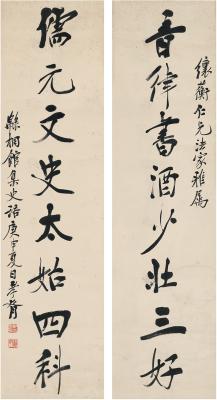 音律書酒少壯三好
纕蘅仁兄法家雅屬
儒元文史太始四科
蘇桐館集史語庚申夏日孝胥